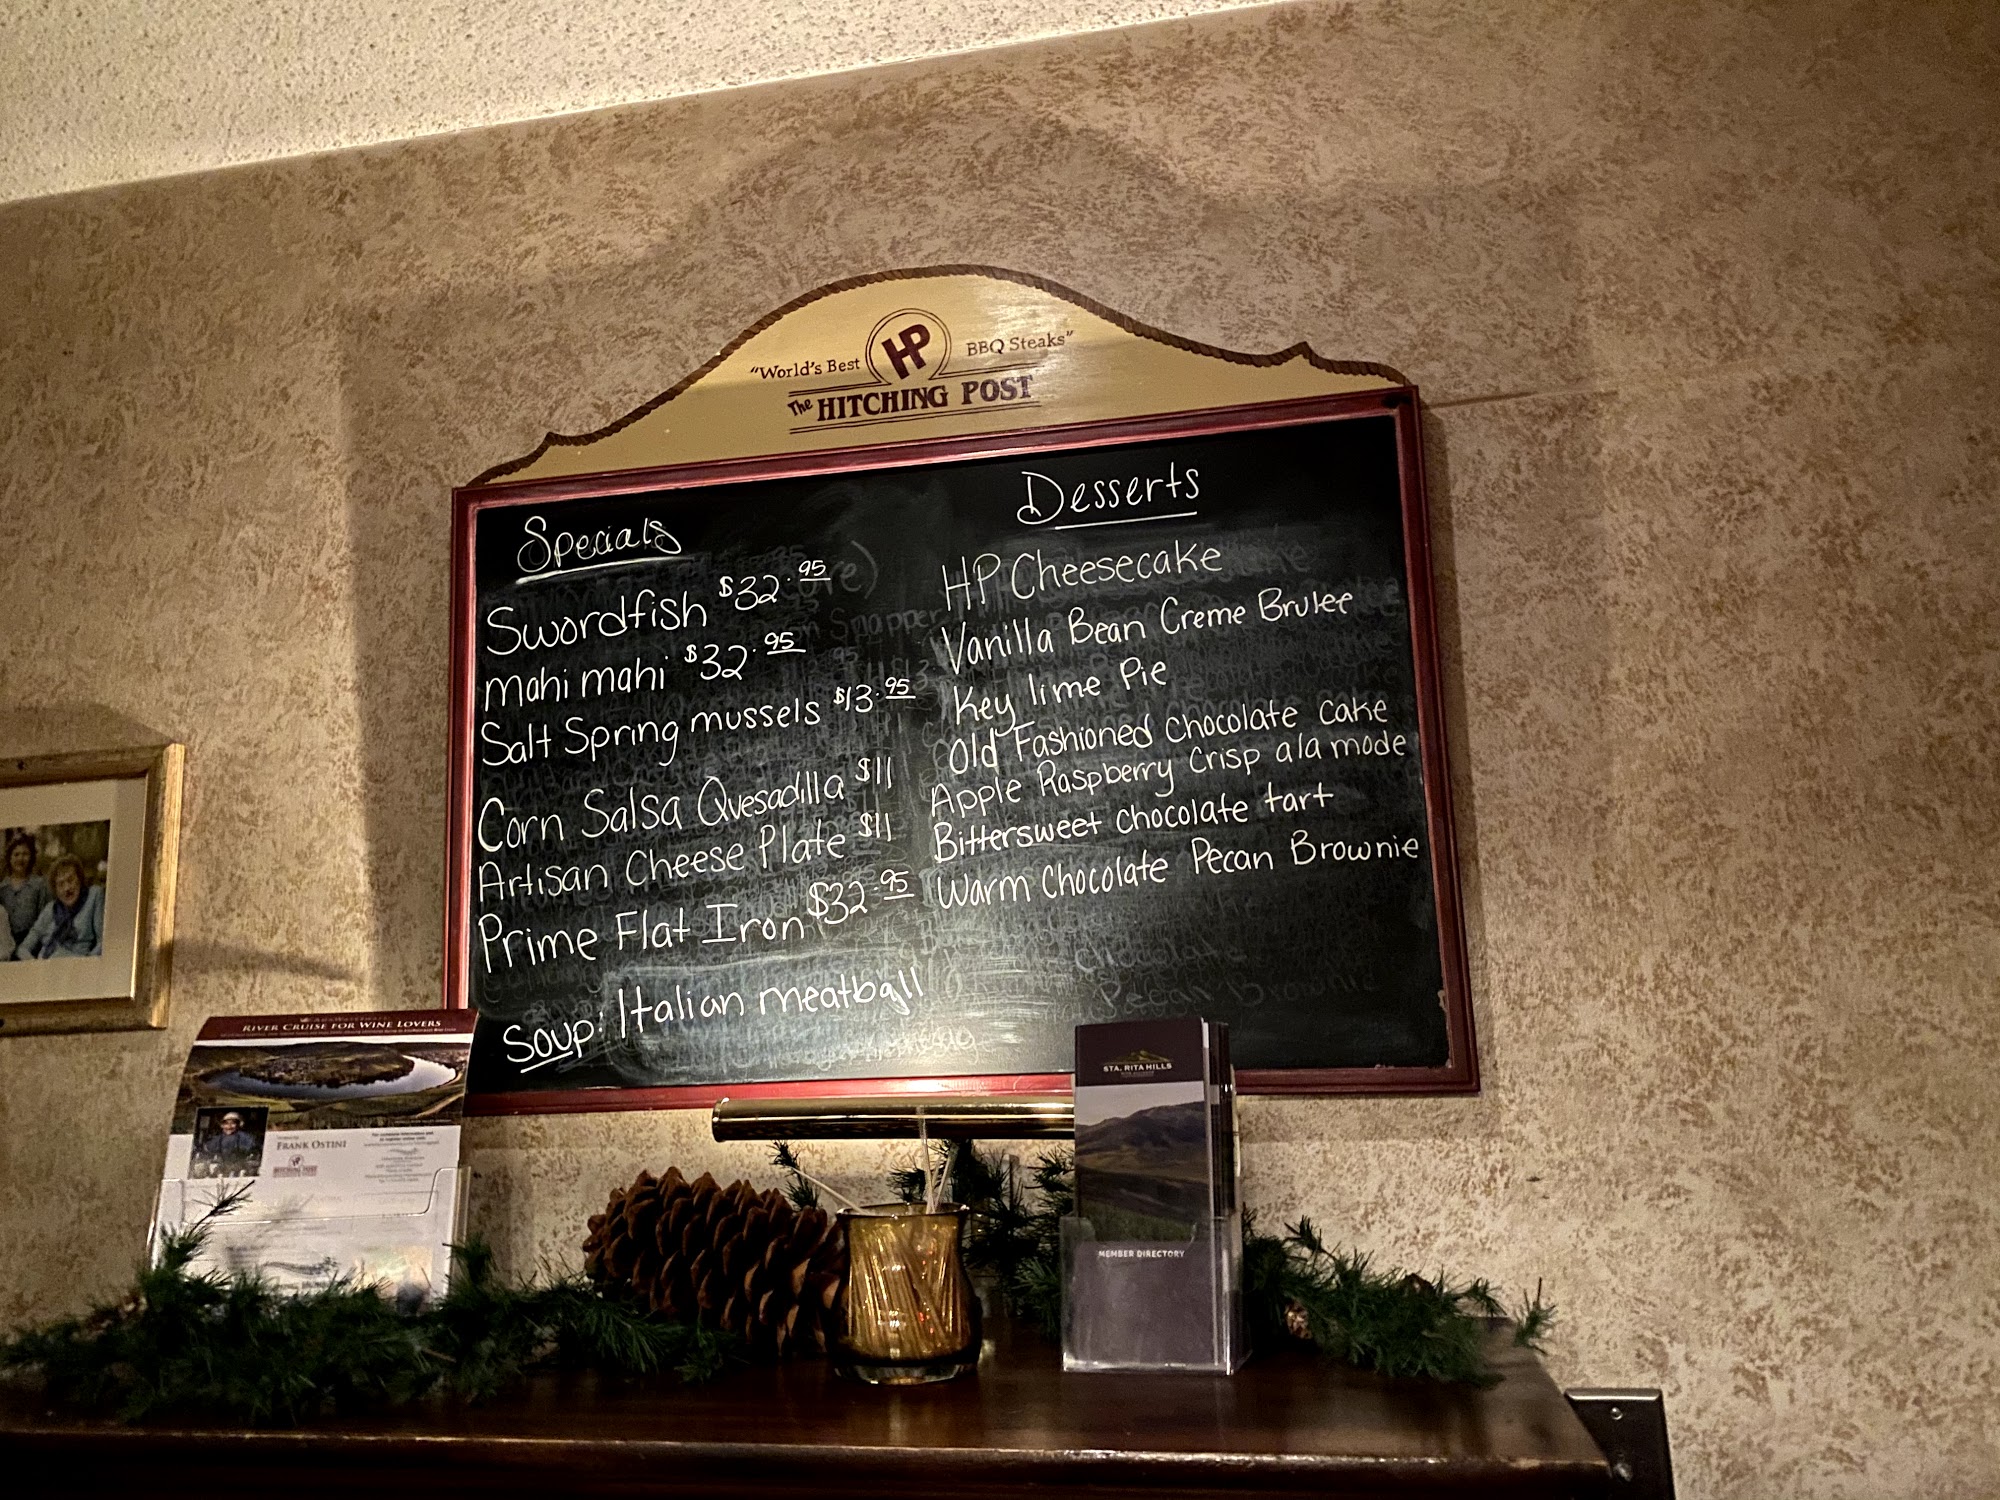 "World's Best HP BBQ Steaks"
The HITCHING POST
Specials
Swordfish $32.95
Mahi mahi $32.95
Salt Spring mussels $13.95
Corn Salsa Quesadilla $11
Artisan Cheese Plate $11
Prime Flat Iron $32.95
Soup: Italian meatball
Desserts
HP Cheesecake
Vanilla Bean Creme Brulee
Key lime Pie
Old Fashioned Chocolate cake
Apple Raspberry Crisp ala mode
Bittersweet chocolate tart
Warm Chocolate Pecan Brownie
chocolate
Pecan Brownie
RIVER CRUISE FOR WINE LOVERS
FRANK OSTINI
HITCHING POST
STA. RITA HILLS
MEMBER DIRECTORY